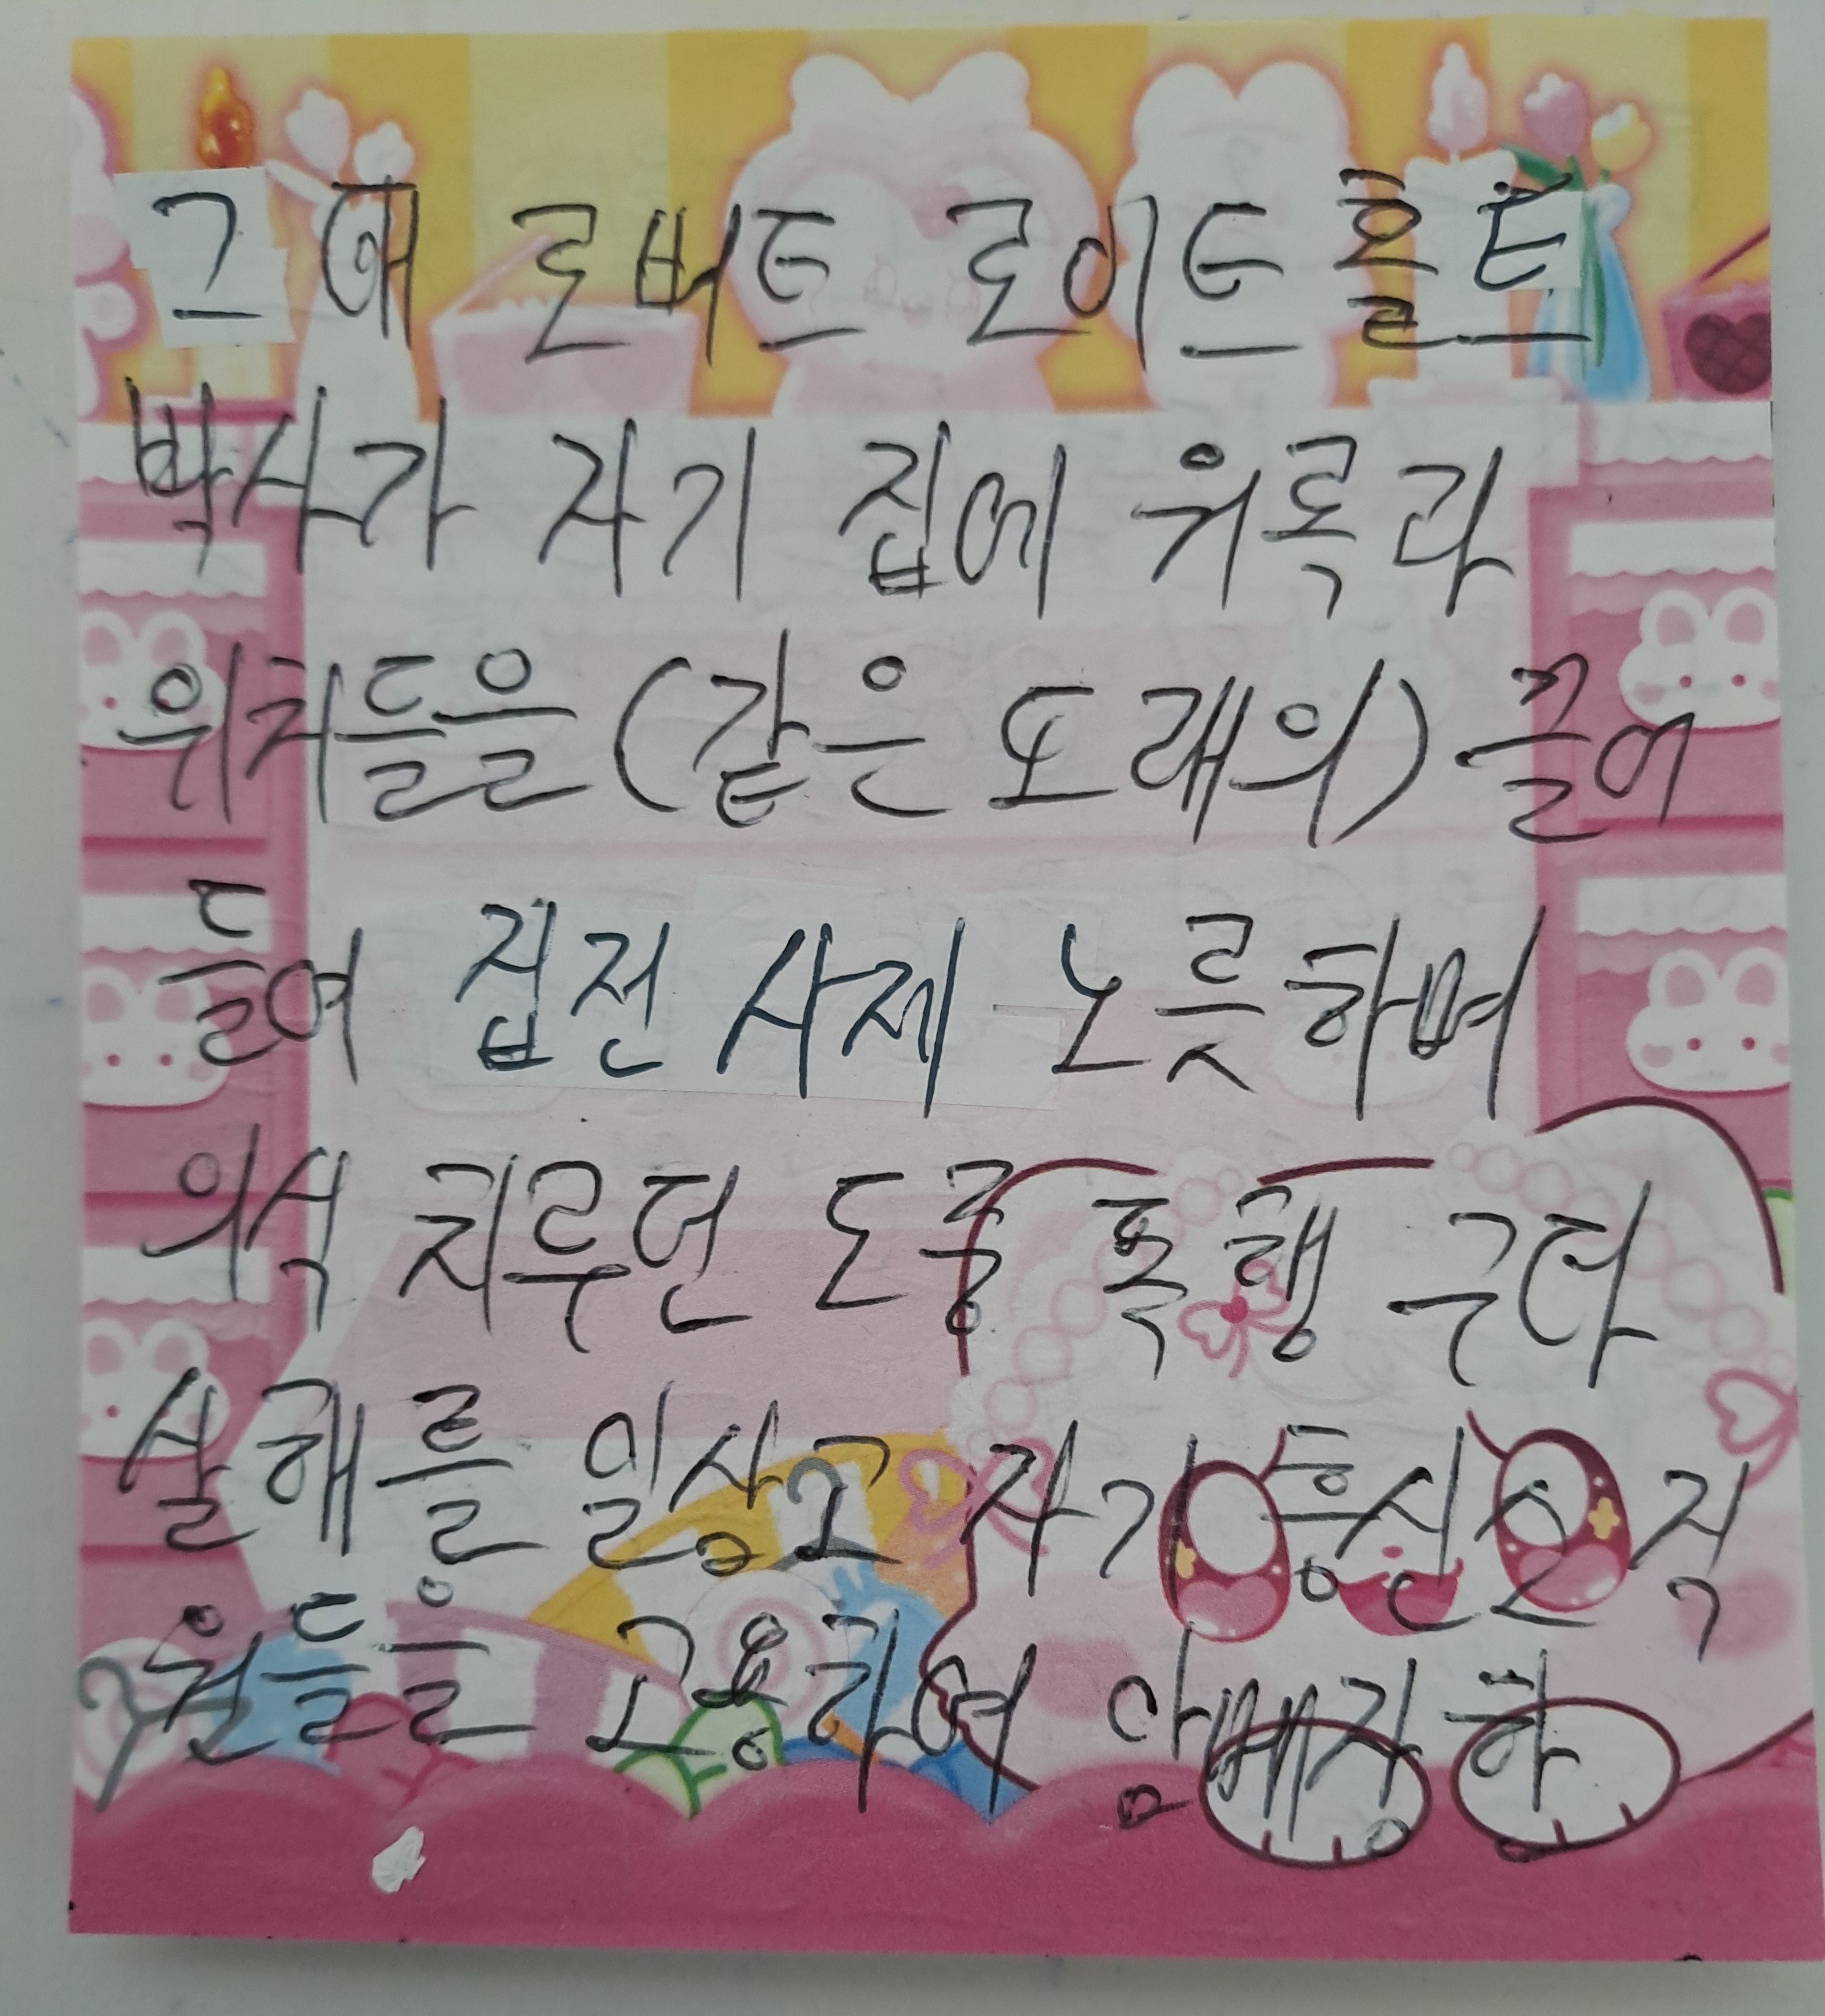 그 때 로버트 로이트홀트
박사가 자기 집에 위록과
위치들을 (같은 또래의) 끌어
들여 집전 사제 노릇하며
의식 치루던 도중 폭행 구타
살해를 일삼고 자기 흥신소 직
원들을 고용하여 암매장한